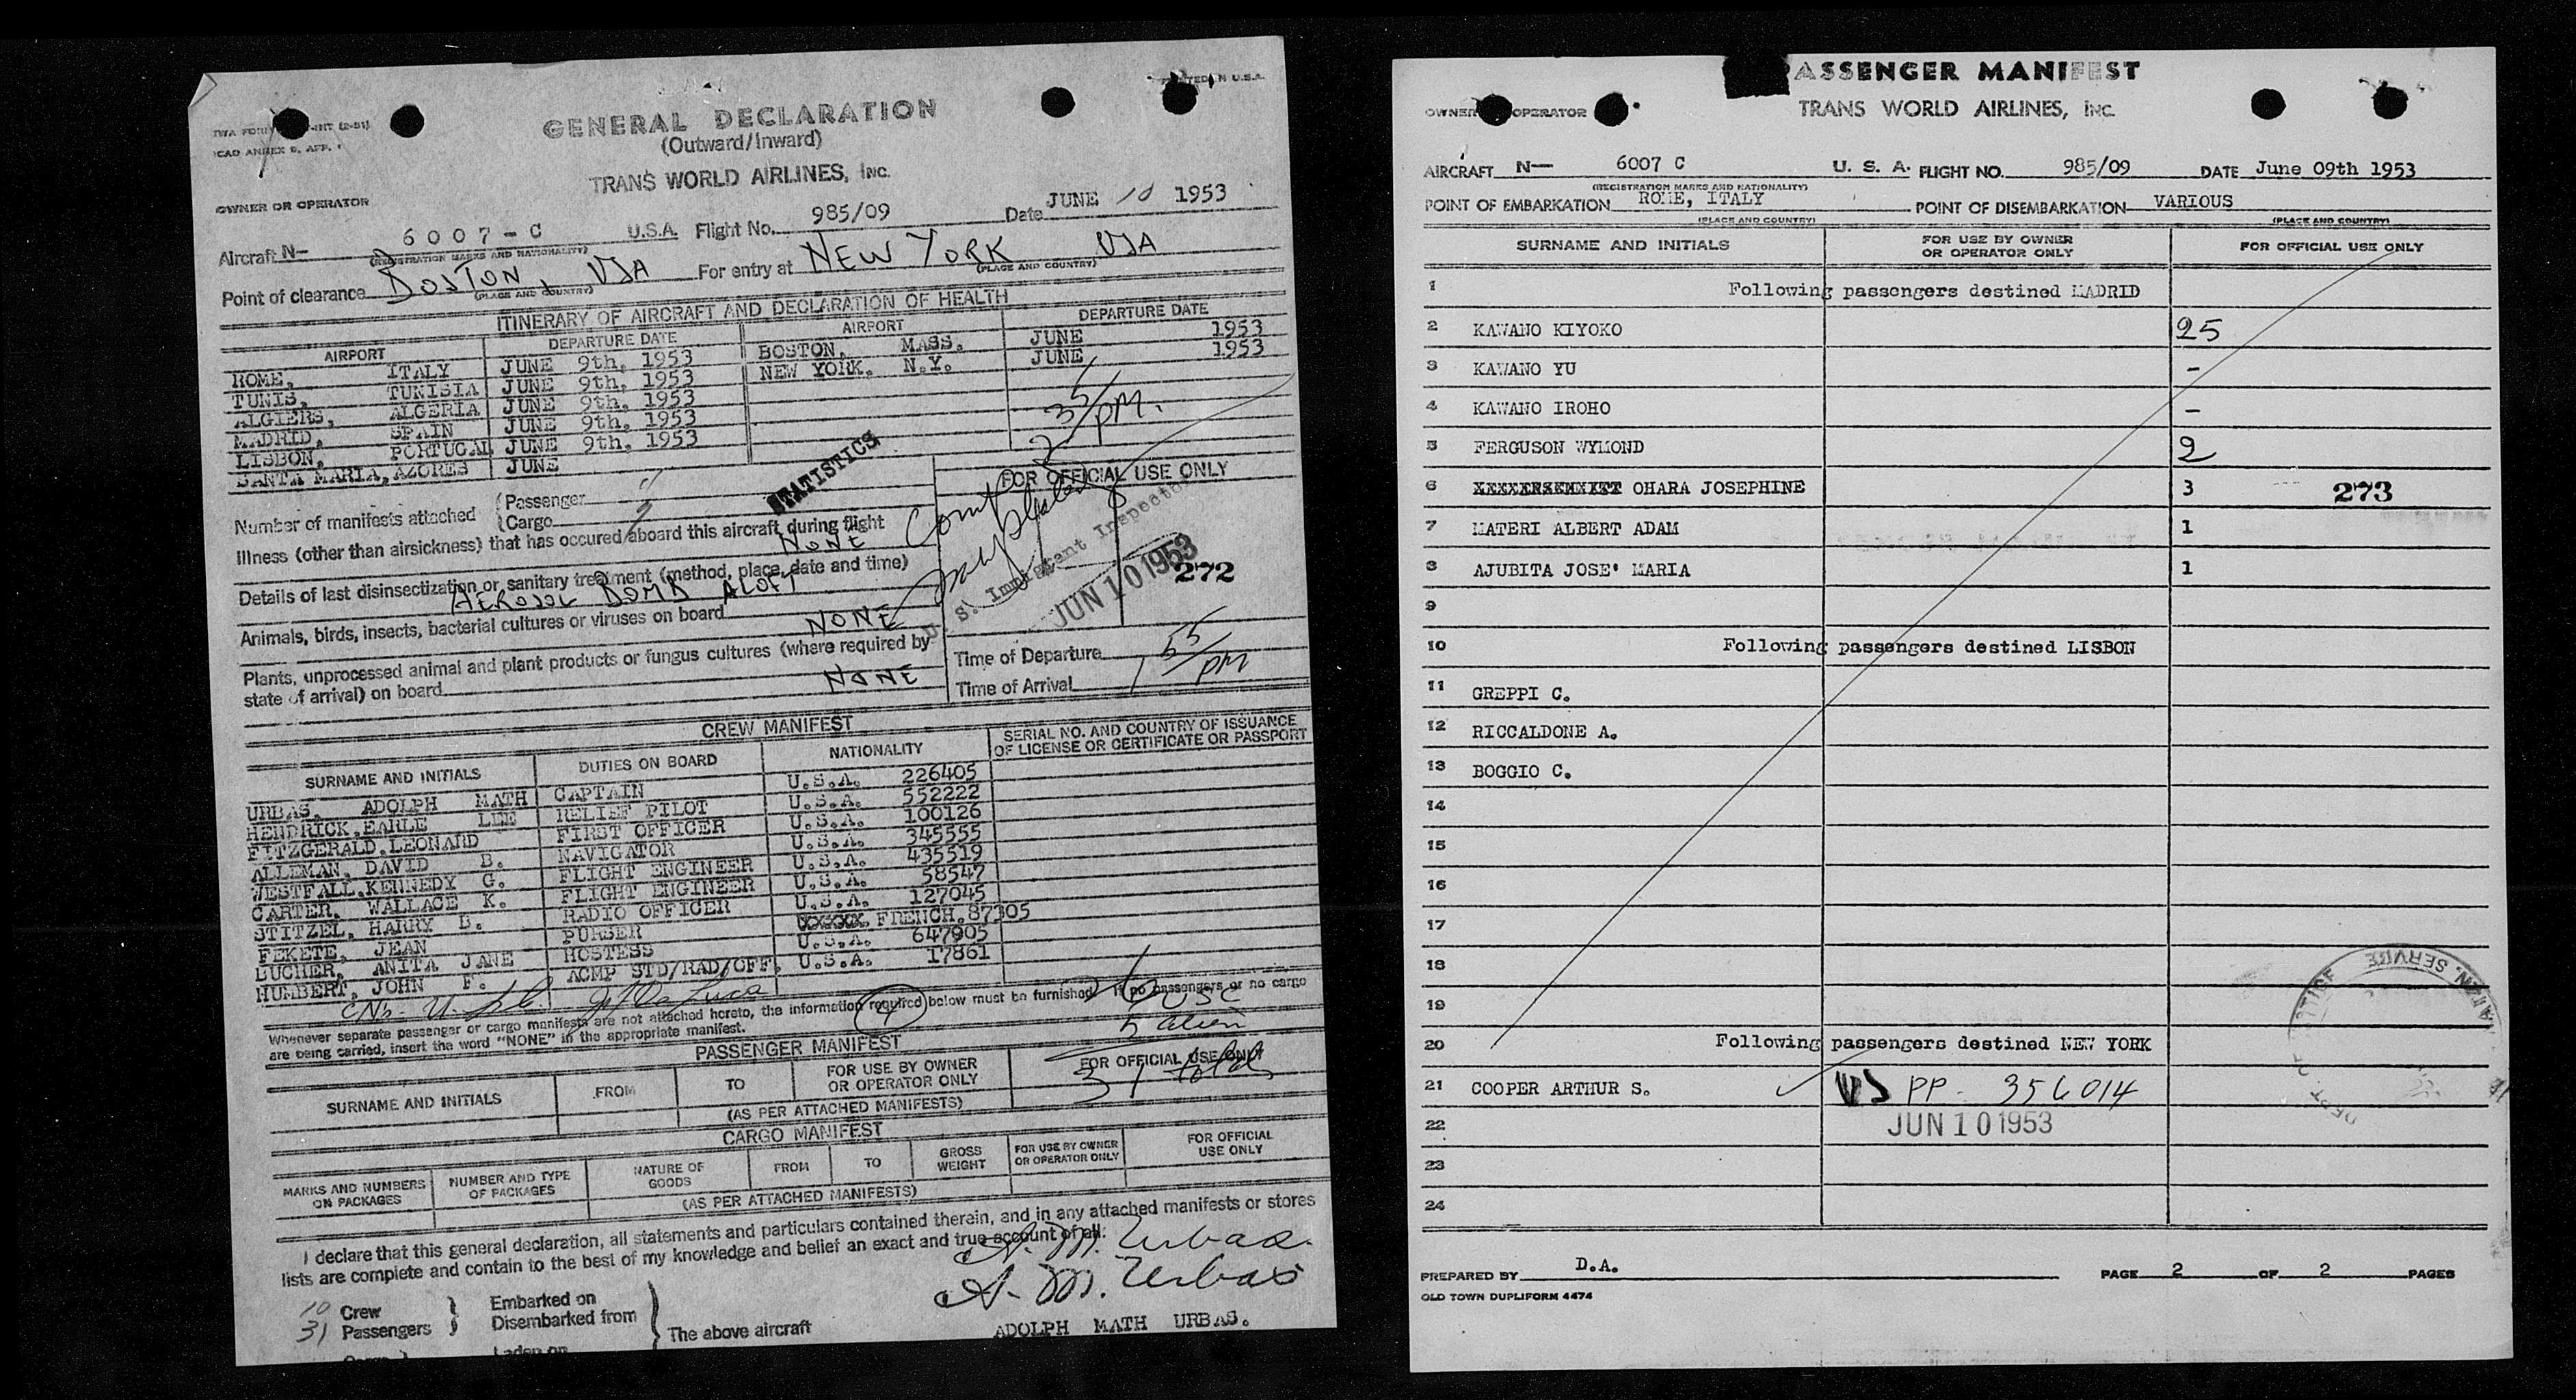 PRINTED IN U.S.A.
GENERAL DECLARATION
(Outward/Inward)
TRANS WORLD AIRLINES, INC.
ICAO ANNEX 9, APP. 1
OWNER OR OPERATOR
Aircraft N- 6007-C U.S.A. Flight No. 985/09 Date JUNE 10 1953
(REGISTRATION MARKS AND NATIONALITY)
Point of clearance BOSTON, USA For entry at NEW YORK USA
(PLACE AND COUNTRY) (PLACE AND COUNTRY)
ITINERARY OF AIRCRAFT AND DECLARATION OF HEALTH
AIRPORT DEPARTURE DATE AIRPORT DEPARTURE DATE
ROME, ITALY JUNE 9th, 1953 BOSTON, MASS. JUNE 1953
TUNIS, TUNISIA JUNE 9th, 1953 NEW YORK, N.Y. JUNE 1953
ALGIERS, ALGERIA JUNE 9th, 1953
MADRID, SPAIN JUNE 9th, 1953
LISBON, PORTUGAL JUNE 9th, 1953
SANTA MARIA, AZORES JUNE
2 35/PM.
STATISTICS
FOR OFFICIAL USE ONLY
Number of manifests attached
Passenger
Cargo
Illness (other than airsickness) that has occured aboard this aircraft during flight
NONE
Details of last disinsectization or sanitary treatment (method, place, date and time)
AEROSOL BOMB ALOFT
Animals, birds, insects, bacterial cultures or viruses on board NONE
Plants, unprocessed animal and plant products or fungus cultures (where required by
state of arrival) on board NONE
U. S. Immigrant Inspector
JUN 10 1953
272
Time of Departure
Time of Arrival 1 55/PM
CREW MANIFEST
SURNAME AND INITIALS DUTIES ON BOARD NATIONALITY SERIAL NO. AND COUNTRY OF ISSUANCE
OF LICENSE OR CERTIFICATE OR PASSPORT
URBAS, ADOLPH MATH CAPTAIN U.S.A. 226405
HENDRICK, EARLE LEE RELIEF PILOT U.S.A. 552222
FITZGERALD, LEONARD FIRST OFFICER U.S.A. 100126
ALLEMAN, DAVID B. NAVIGATOR U.S.A. 345555
WESTFALL, KENNEDY G. FLIGHT ENGINEER U.S.A. 435519
CARTER, WALLACE K. FLIGHT ENGINEER U.S.A. 58547
STITZEL, HARRY B. RADIO OFFICER U.S.A. 127045
FEKETE, JEAN PURSER XXXXX FRENCH. 87305
BUCHER, ANITA JANE HOSTESS U.S.A. 647905
HUMBERT, JOHN F. ACMP STD/RAD/OFF. U.S.A. 17861
Whenever separate passenger or cargo manifests are not attached hereto, the information required below must be furnished. If no passengers or no cargo
are being carried, insert the word "NONE" in the appropriate manifest.
4
26 USC
5 alien
31 total
PASSENGER MANIFEST
SURNAME AND INITIALS FROM TO FOR USE BY OWNER
OR OPERATOR ONLY FOR OFFICIAL USE ONLY
(AS PER ATTACHED MANIFESTS)
CARGO MANIFEST
MARKS AND NUMBERS
ON PACKAGES NUMBER AND TYPE
OF PACKAGES NATURE OF
GOODS FROM TO GROSS
WEIGHT FOR USE BY OWNER
OR OPERATOR ONLY FOR OFFICIAL
USE ONLY
(AS PER ATTACHED MANIFESTS)
I declare that this general declaration, all statements and particulars contained therein, and in any attached manifests or stores
lists are complete and contain to the best of my knowledge and belief an exact and true account of all:
A. M. Urbas.
A. M. Urbas
10 Crew
31 Passengers
Embarked on
Disembarked from
The above aircraft
ADOLPH MATH URBAS.
Laden on
PASSENGER MANIFEST
TRANS WORLD AIRLINES, INC.
OWNER OPERATOR
AIRCRAFT N- 6007 C U. S. A. FLIGHT NO. 985/09 DATE June 09th 1953
(REGISTRATION MARKS AND NATIONALITY)
POINT OF EMBARKATION ROME, ITALY POINT OF DISEMBARKATION VARIOUS
(PLACE AND COUNTRY) (PLACE AND COUNTRY)
SURNAME AND INITIALS FOR USE BY OWNER
OR OPERATOR ONLY FOR OFFICIAL USE ONLY
1 Following passengers destined MADRID
2 KAWANO KIYOKO 25
3 KAWANO YU -
4 KAWANO IROHO -
5 FERGUSON WYMOND 2
6 OHARA JOSEPHINE 3 273
7 MATERI ALBERT ADAM 1
8 AJUBITA JOSE' MARIA 1
9
10 Following passengers destined LISBON
11 GREPPI C.
12 RICCALDONE A.
13 BOGGIO C.
14
15
16
17
18
19
20 Following passengers destined NEW YORK
21 COOPER ARTHUR S. US PP - 356014
22 JUN 10 1953
23
24
PREPARED BY D.A. PAGE 2 OF 2 PAGES
OLD TOWN DUPLIFORM 4474